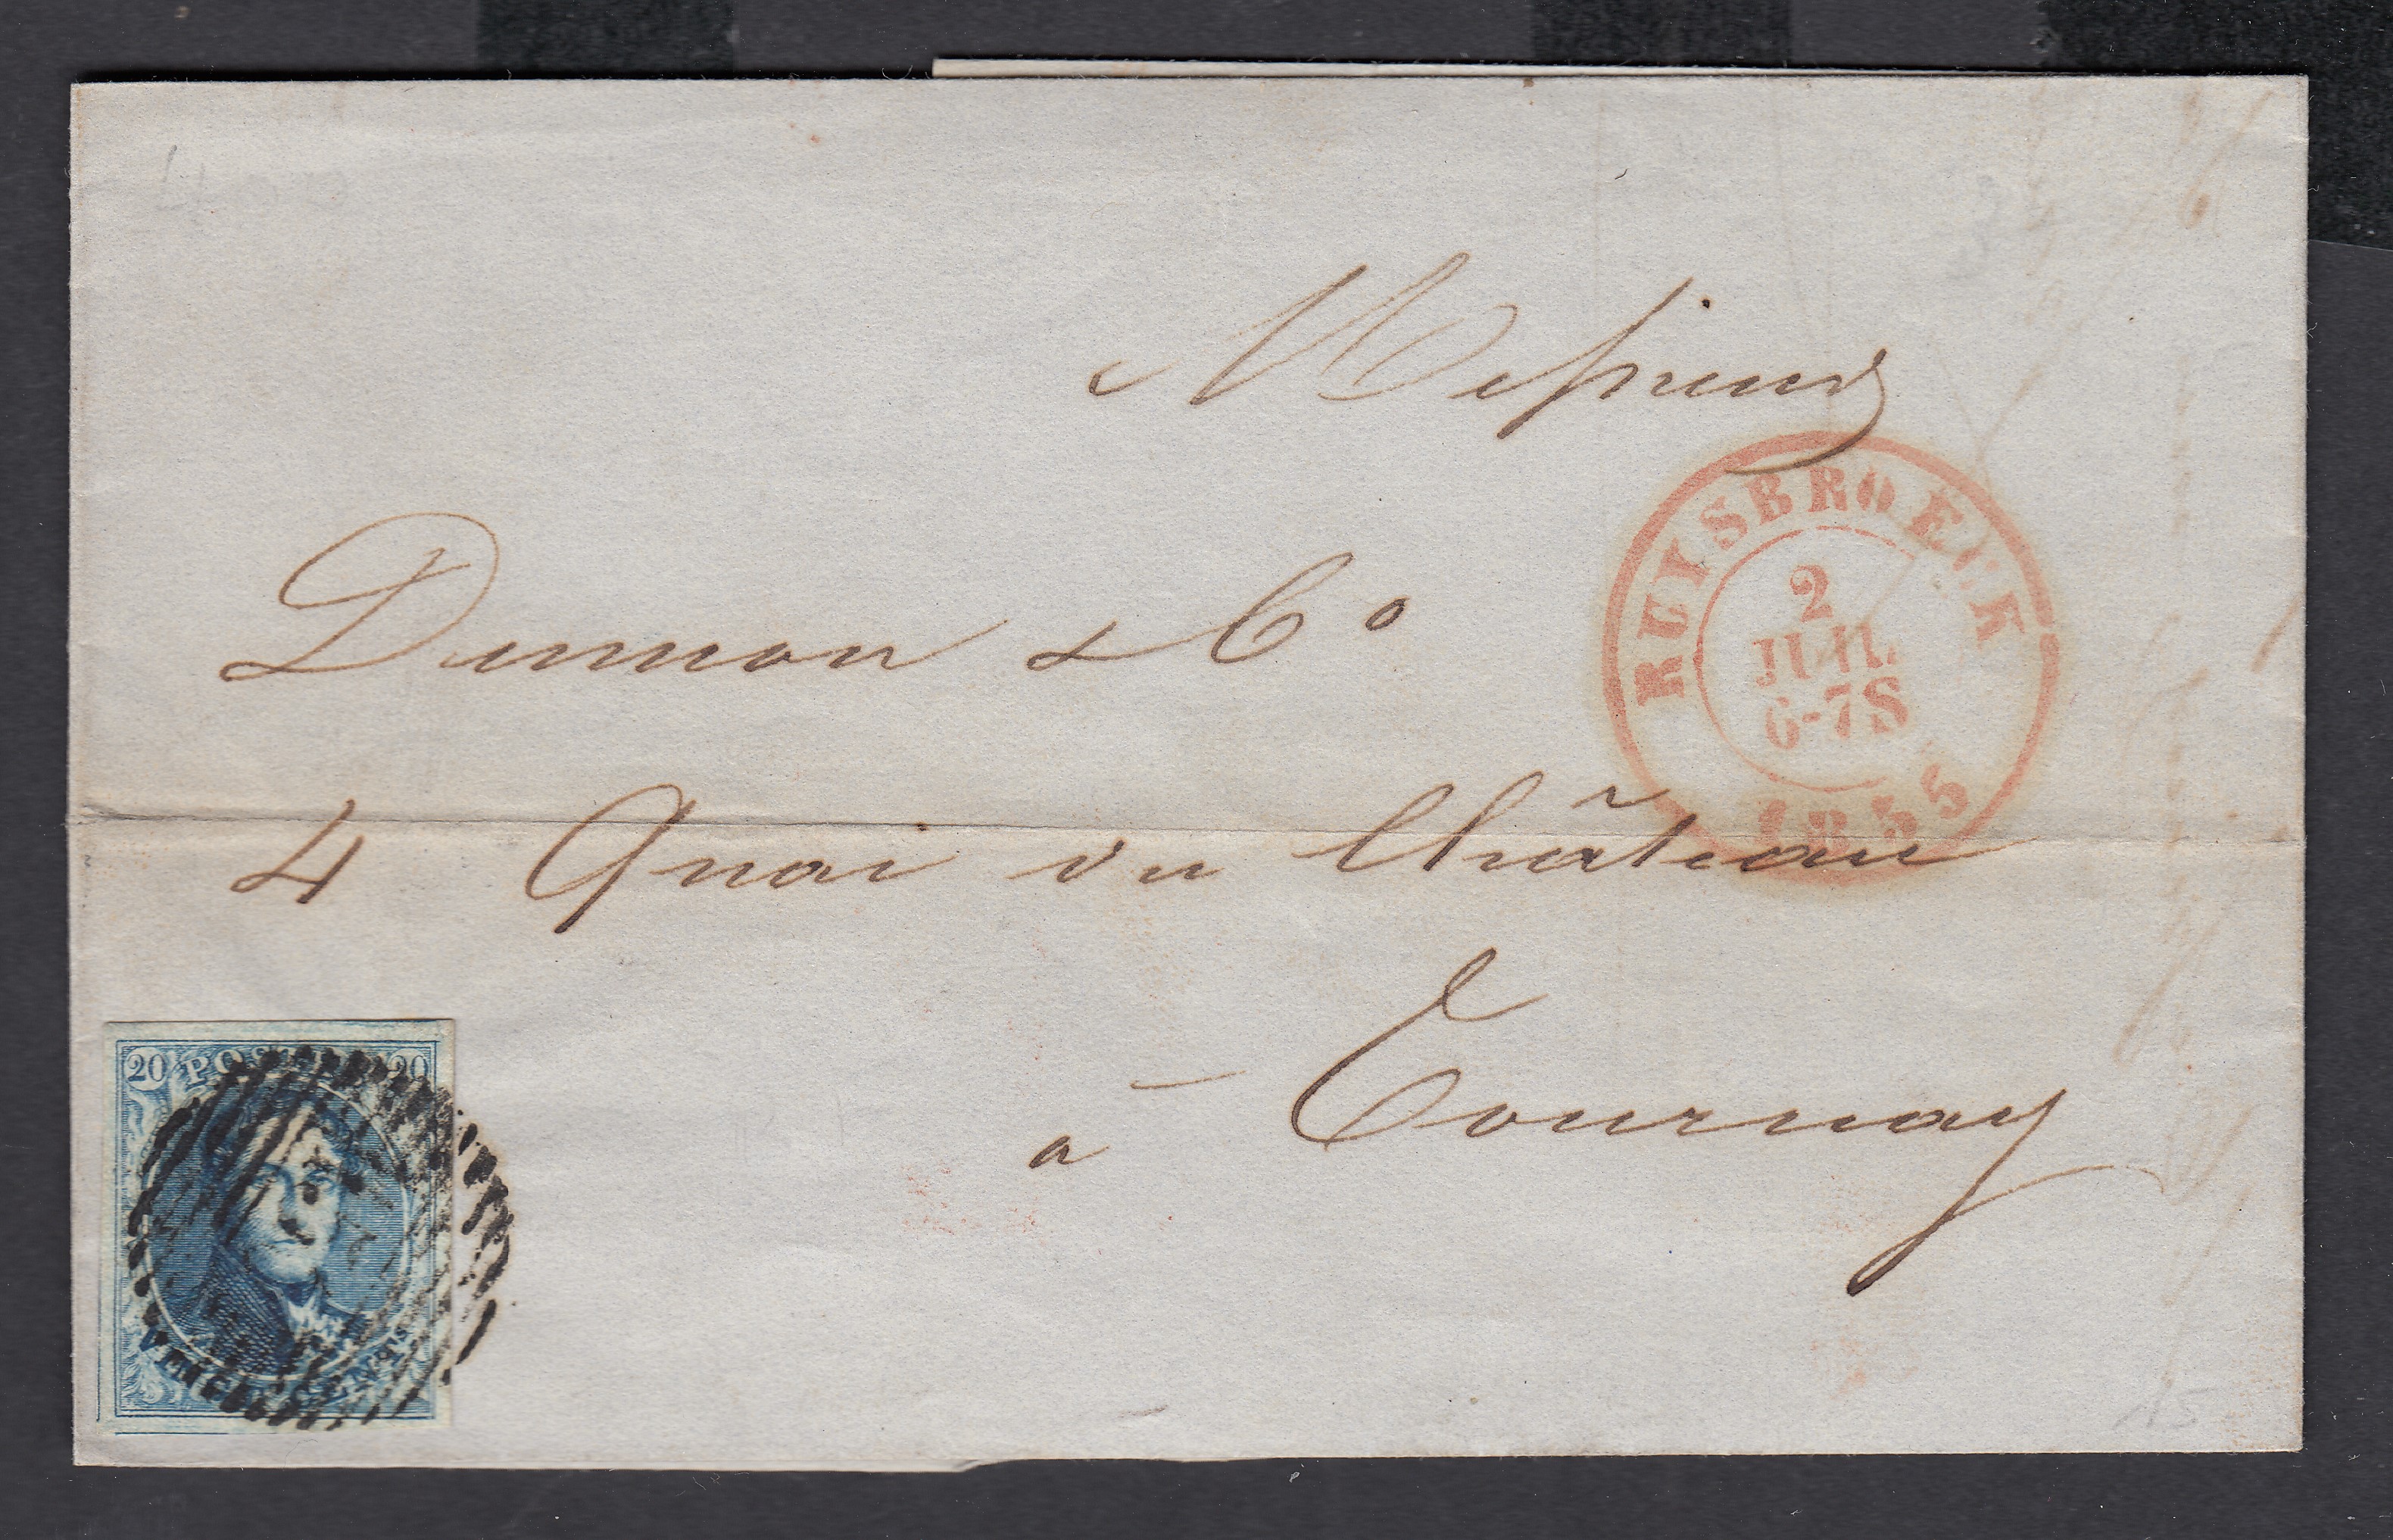 Messieurs
Dumon & Co
4 Quai du Château
a Tournay
RUYSBROECK
2
JUIL.
6-7S
1855
20 POSTES 20
VINGT CENTS
15